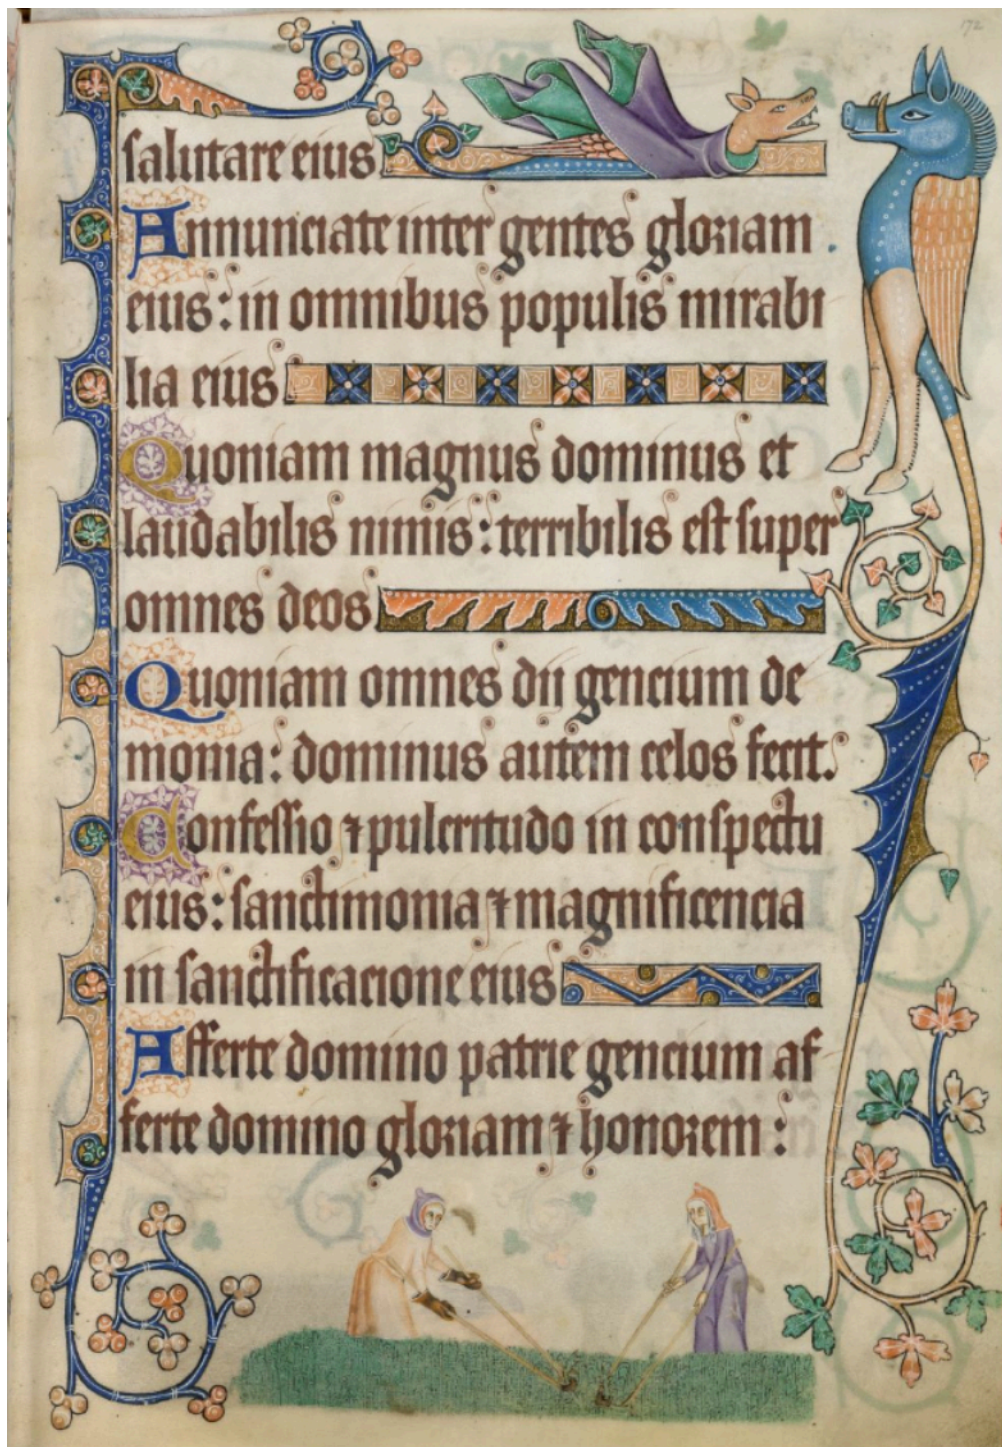 172
salutare eius.
Annunciate inter gentes gloriam
eius: in omnibus populis mirabi
lia eius.
Quoniam magnus dominus et
laudabilis nimis: terribilis est super
omnes deos
Quoniam omnes dii gencium de
monia: dominus autem celos fecit.
Confessio ⁊ pulcritudo in conspectu
eius: sanctimonia ⁊ magnificencia
in sanctificacione eius
Afferte domino patrie gencium af
ferte domino gloriam ⁊ honorem: